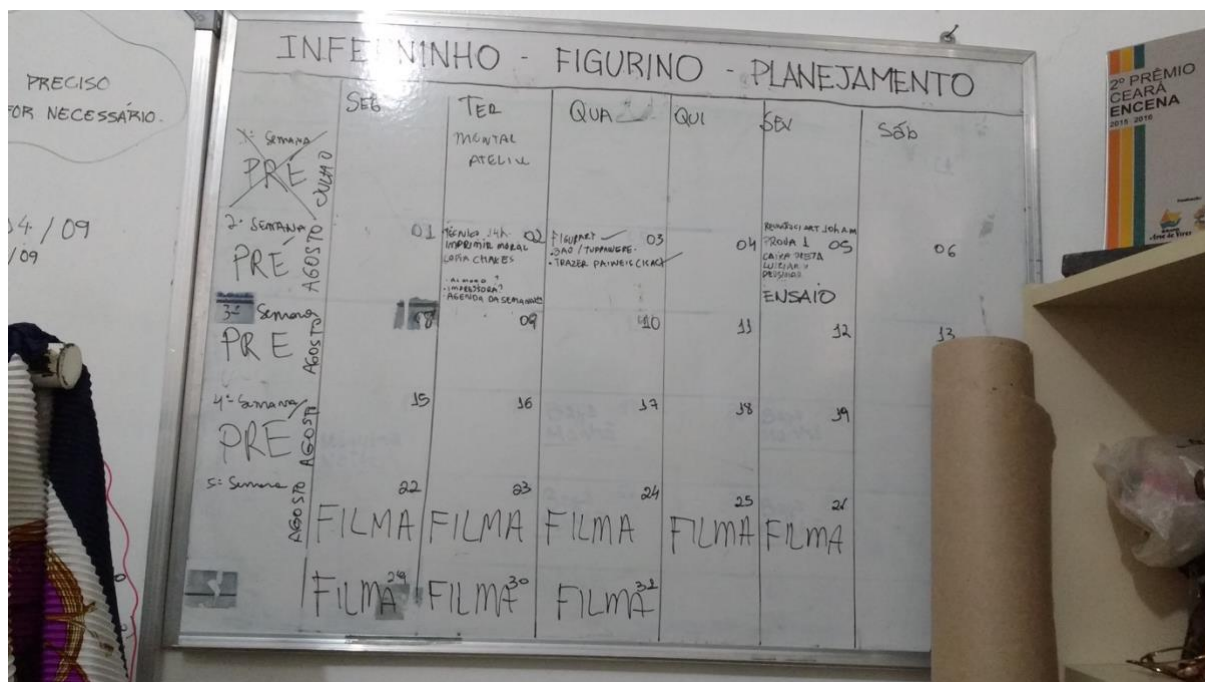 PRECISO
FOR NECESSÁRIO.
04/09
/09
INFERNINHO - FIGURINO - PLANEJAMENTO
SEG TER QUA QUI SEX Sáb
1ª SEMANA
PRÉ
JULHO
MONTAR
ATELIÊ
2ª SEMANA
PRÉ
AGOSTO
01
TÉCNICA 14h. 02
IMPRIMIR MORAL
COPIA CHAVES
IMPRESSORA?
AGENDA DA SEMANA
FIGURART 03
TRAZER PAINEIS
04
PROVA 1 05
CAIXA PRETA
ENSAIO
06
3ª Semana
PRÉ
AGOSTO
08 09 10 11 12 13
4ª Semana
PRÉ
AGOSTO
15 16 17 18 19
5ª Semana
AGOSTO
22 23 24 25 26
FILMA FILMA FILMA FILMA FILMA
FILMA 29 FILMA 30 FILMA 31
2º PRÊMIO
CEARÁ
ENCENA
2015 2016